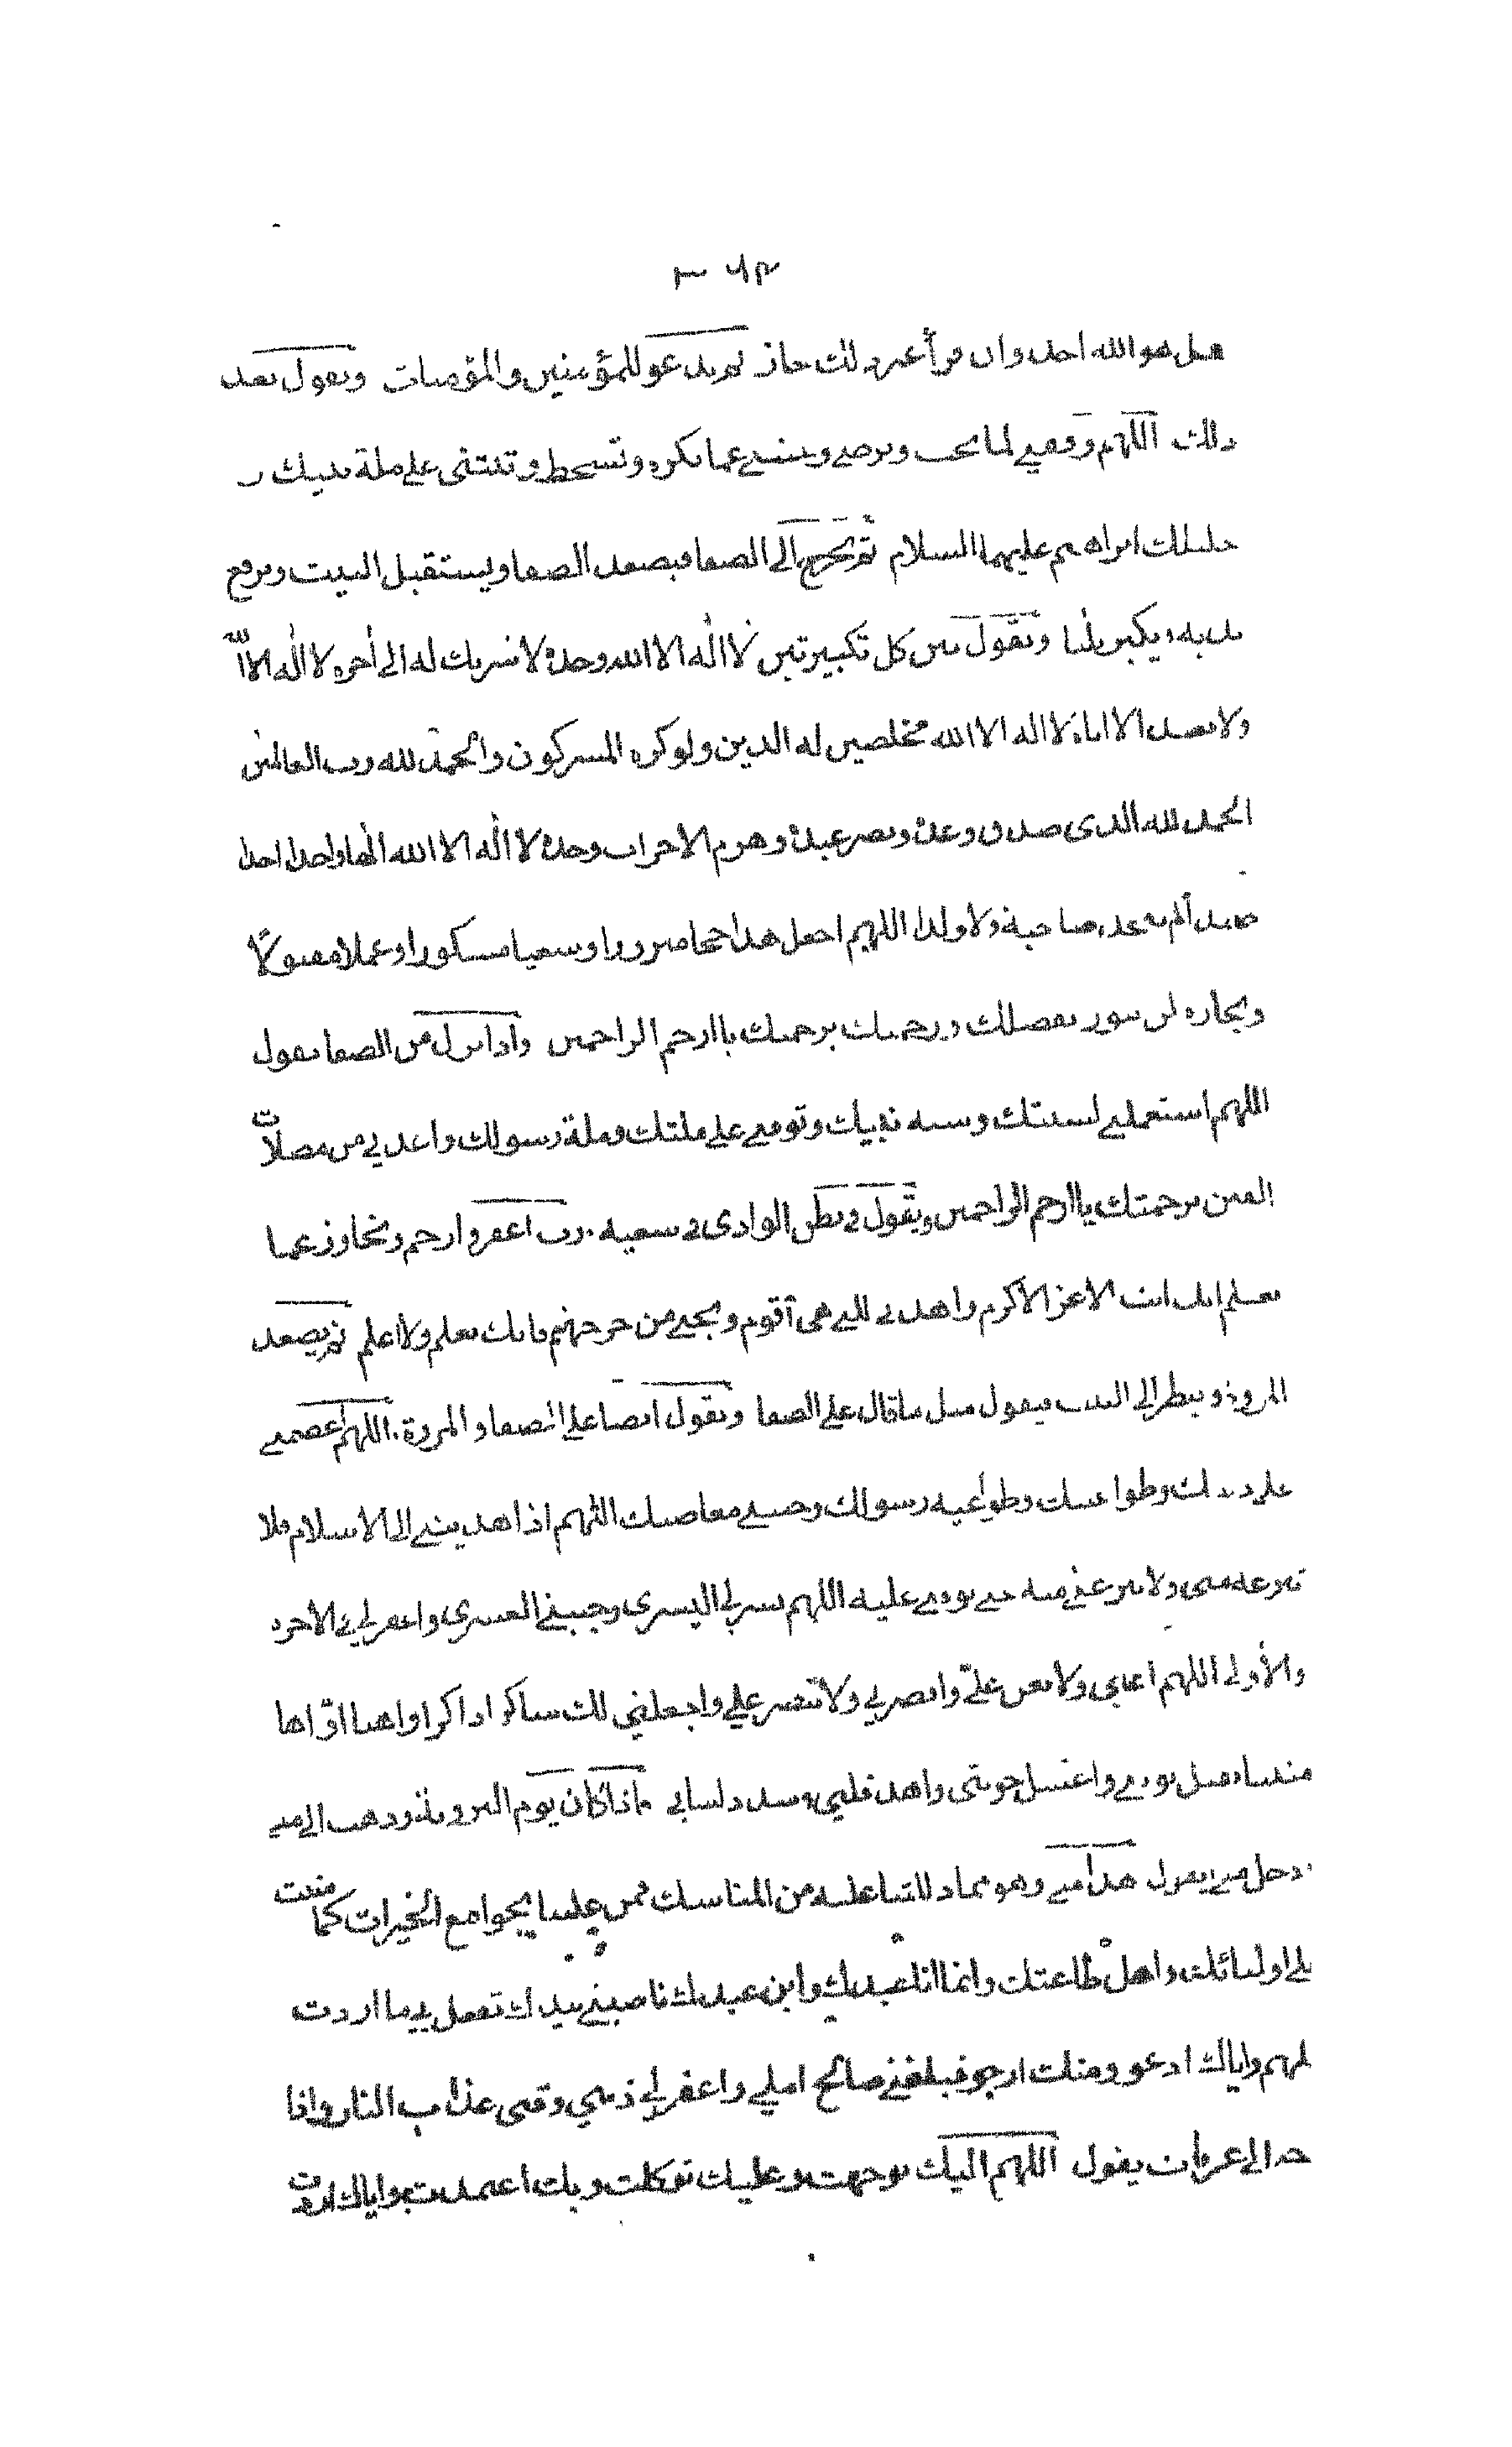 قل هو الله احد وان قرأ غير ذلك جاز ثم يدعو للمؤمنين والمؤمنات ويقول بعد
ذلك اللهم وفقني لما تحب وترضى وجنبني عما تكره وتسخط وثبتني على ملة نبيك و
خليلك ابراهيم عليهما السلام ثم يخرج الى الصفا فيصعد الصفا ويستقبل البيت ويرفع
يديه ويكبر ثلثا ويقول بين كل تكبيرتين لا اله الا الله وحده لا شريك له الى آخره لا اله الا الله
ولا نعبد الا اياه لا اله الا الله مخلصين له الدين ولو كره المشركون والحمد لله رب العالمين
الحمد لله الذي صدق وعده ونصر عبده وهزم الاحزاب وحده لا اله الا الله الها واحدا احدا
صمدا لم يتخذ صاحبة ولا ولدا اللهم اجعل هذا حجا مبرورا وسعيا مشكورا وعملا مقبولا
وتجارة لن تبور بفضلك ورحمتك برحمتك يا ارحم الراحمين واذا نزل من الصفا يقول
اللهم استعملني لسنتك وسنة نبيك وتوفني على ملتك وملة رسولك واعذني من مضلات
الفتن برحمتك يا ارحم الراحمين ويقول في بطن الوادي في سعيه رب اغفر وارحم وتجاوز عما
تعلم انك انت الاعز الاكرم واهدني للتي هي أقوم ونجني من حر جهنم فانك تعلم ولا اعلم ثم يصعد
المروة وينظر الى البيت فيقول مثل ما قال على الصفا ويقول ايضا على الصفا والمروة اللهم اعصمني
على دينك وطواعيتك وطواعية رسولك وجنبني معاصيك اللهم اذا هديتني الى الاسلام فلا
تنزعه مني ولا تنزعني منه حتى توفني عليه اللهم يسر لي اليسرى وجنبني العسرى واغفر لي في الآخرة
والأولى اللهم اعني ولا تعن علي وانصرني ولا تنصر علي واجعلني لك شاكرا ذاكرا واهبا اواها
منيبا وتقبل توبتي واغسل حوبتي واهد قلبي وسدد لساني فاذا كان يوم التروية وذهب الى منى
ودخل منى يقول هذا منى وهو مما دللتنا عليه من المناسك فمن علينا بجوامع الخيرات كما مننت
على اوليائك واهل طاعتك وانما انا عبدك وابن عبدك ناصيتي بيدك تفعل بي ما اردت
لهم واياك ادعو ومنك ارجو فبلغني صالح املي واغفر لي ذنبي وقني عذاب النار واذا
غدا الى عرفات يقول اللهم اليك توجهت وعليك توكلت وبك اعتمدت واياك اردت